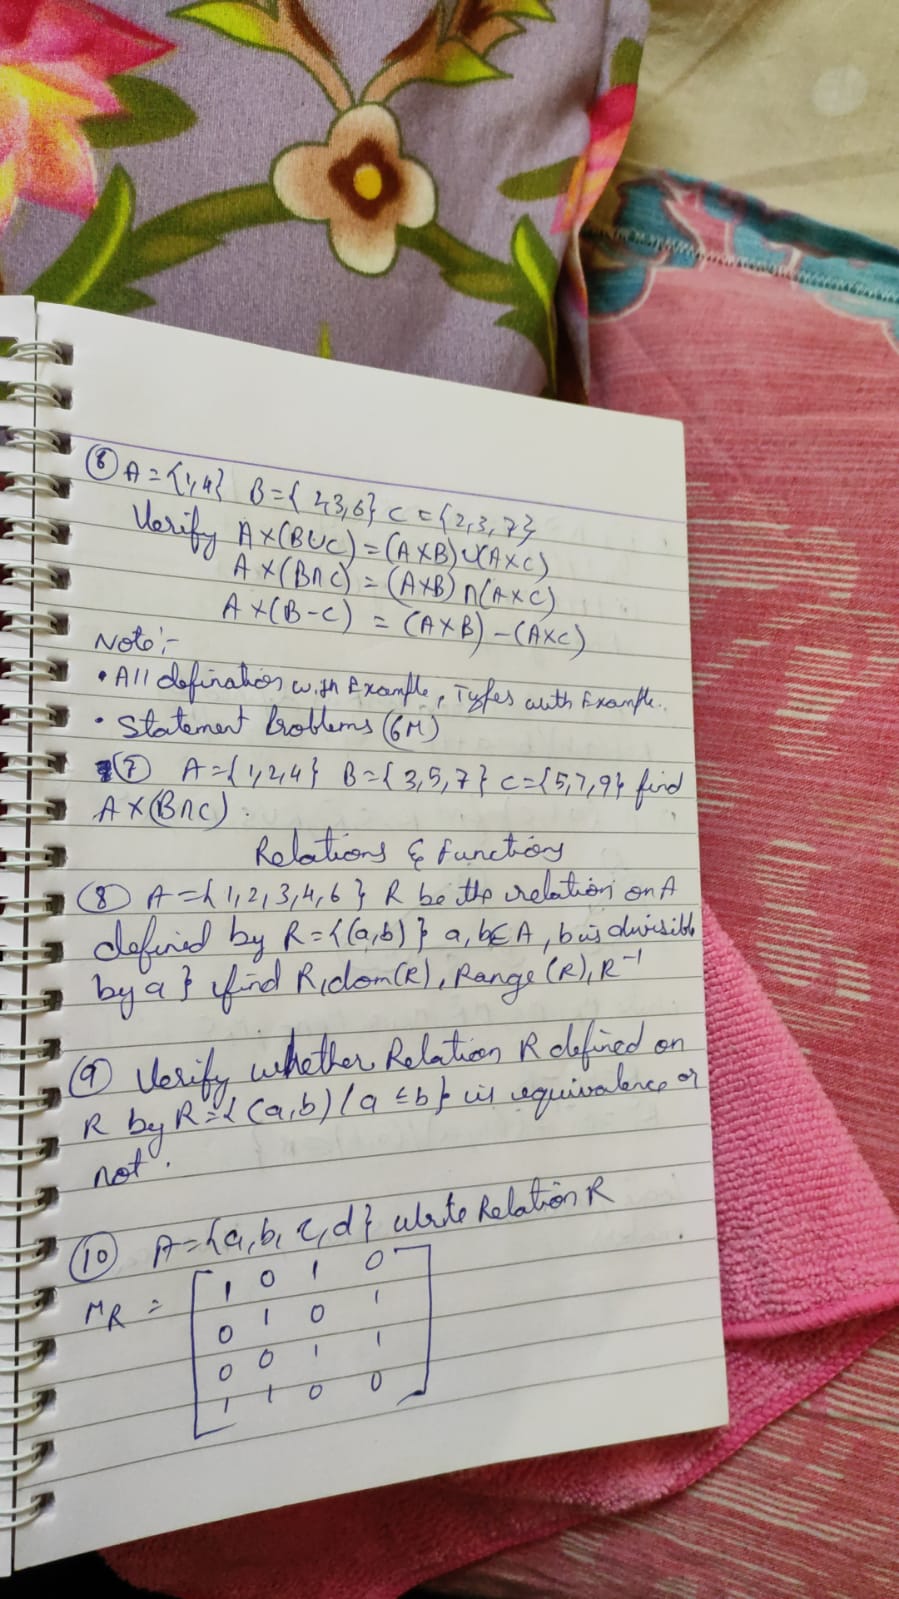 ⑥ A = {1,4} B = { 2,3,6} C = {2,3,7}
Verify A×(BUC) = (A×B)U(A×C)
A×(B∩C) = (A×B)∩(A×C)
A×(B-C) = (A×B)-(A×C)
Note:-
• All defination with Example, Types with Example.
• Statement Problems (6M)
⑦ A={1,2,4} B={3,5,7} C={5,7,9} find
A×(B∩C).
Relations & Functions
⑧ A={1,2,3,4,6} R be the relation on A
defined by R={(a,b)} a,b∈A, b is divisible
by a} find R, dom(R), Range(R), R⁻¹
⑨ Verify whether Relation R defined on
R by R={(a,b)/a≤b} is equivalence or
not.
⑩ A={a,b,c,d} write Relation R
MR = [1 0 1 0
0 1 0 1
0 0 1 1
1 1 0 0]